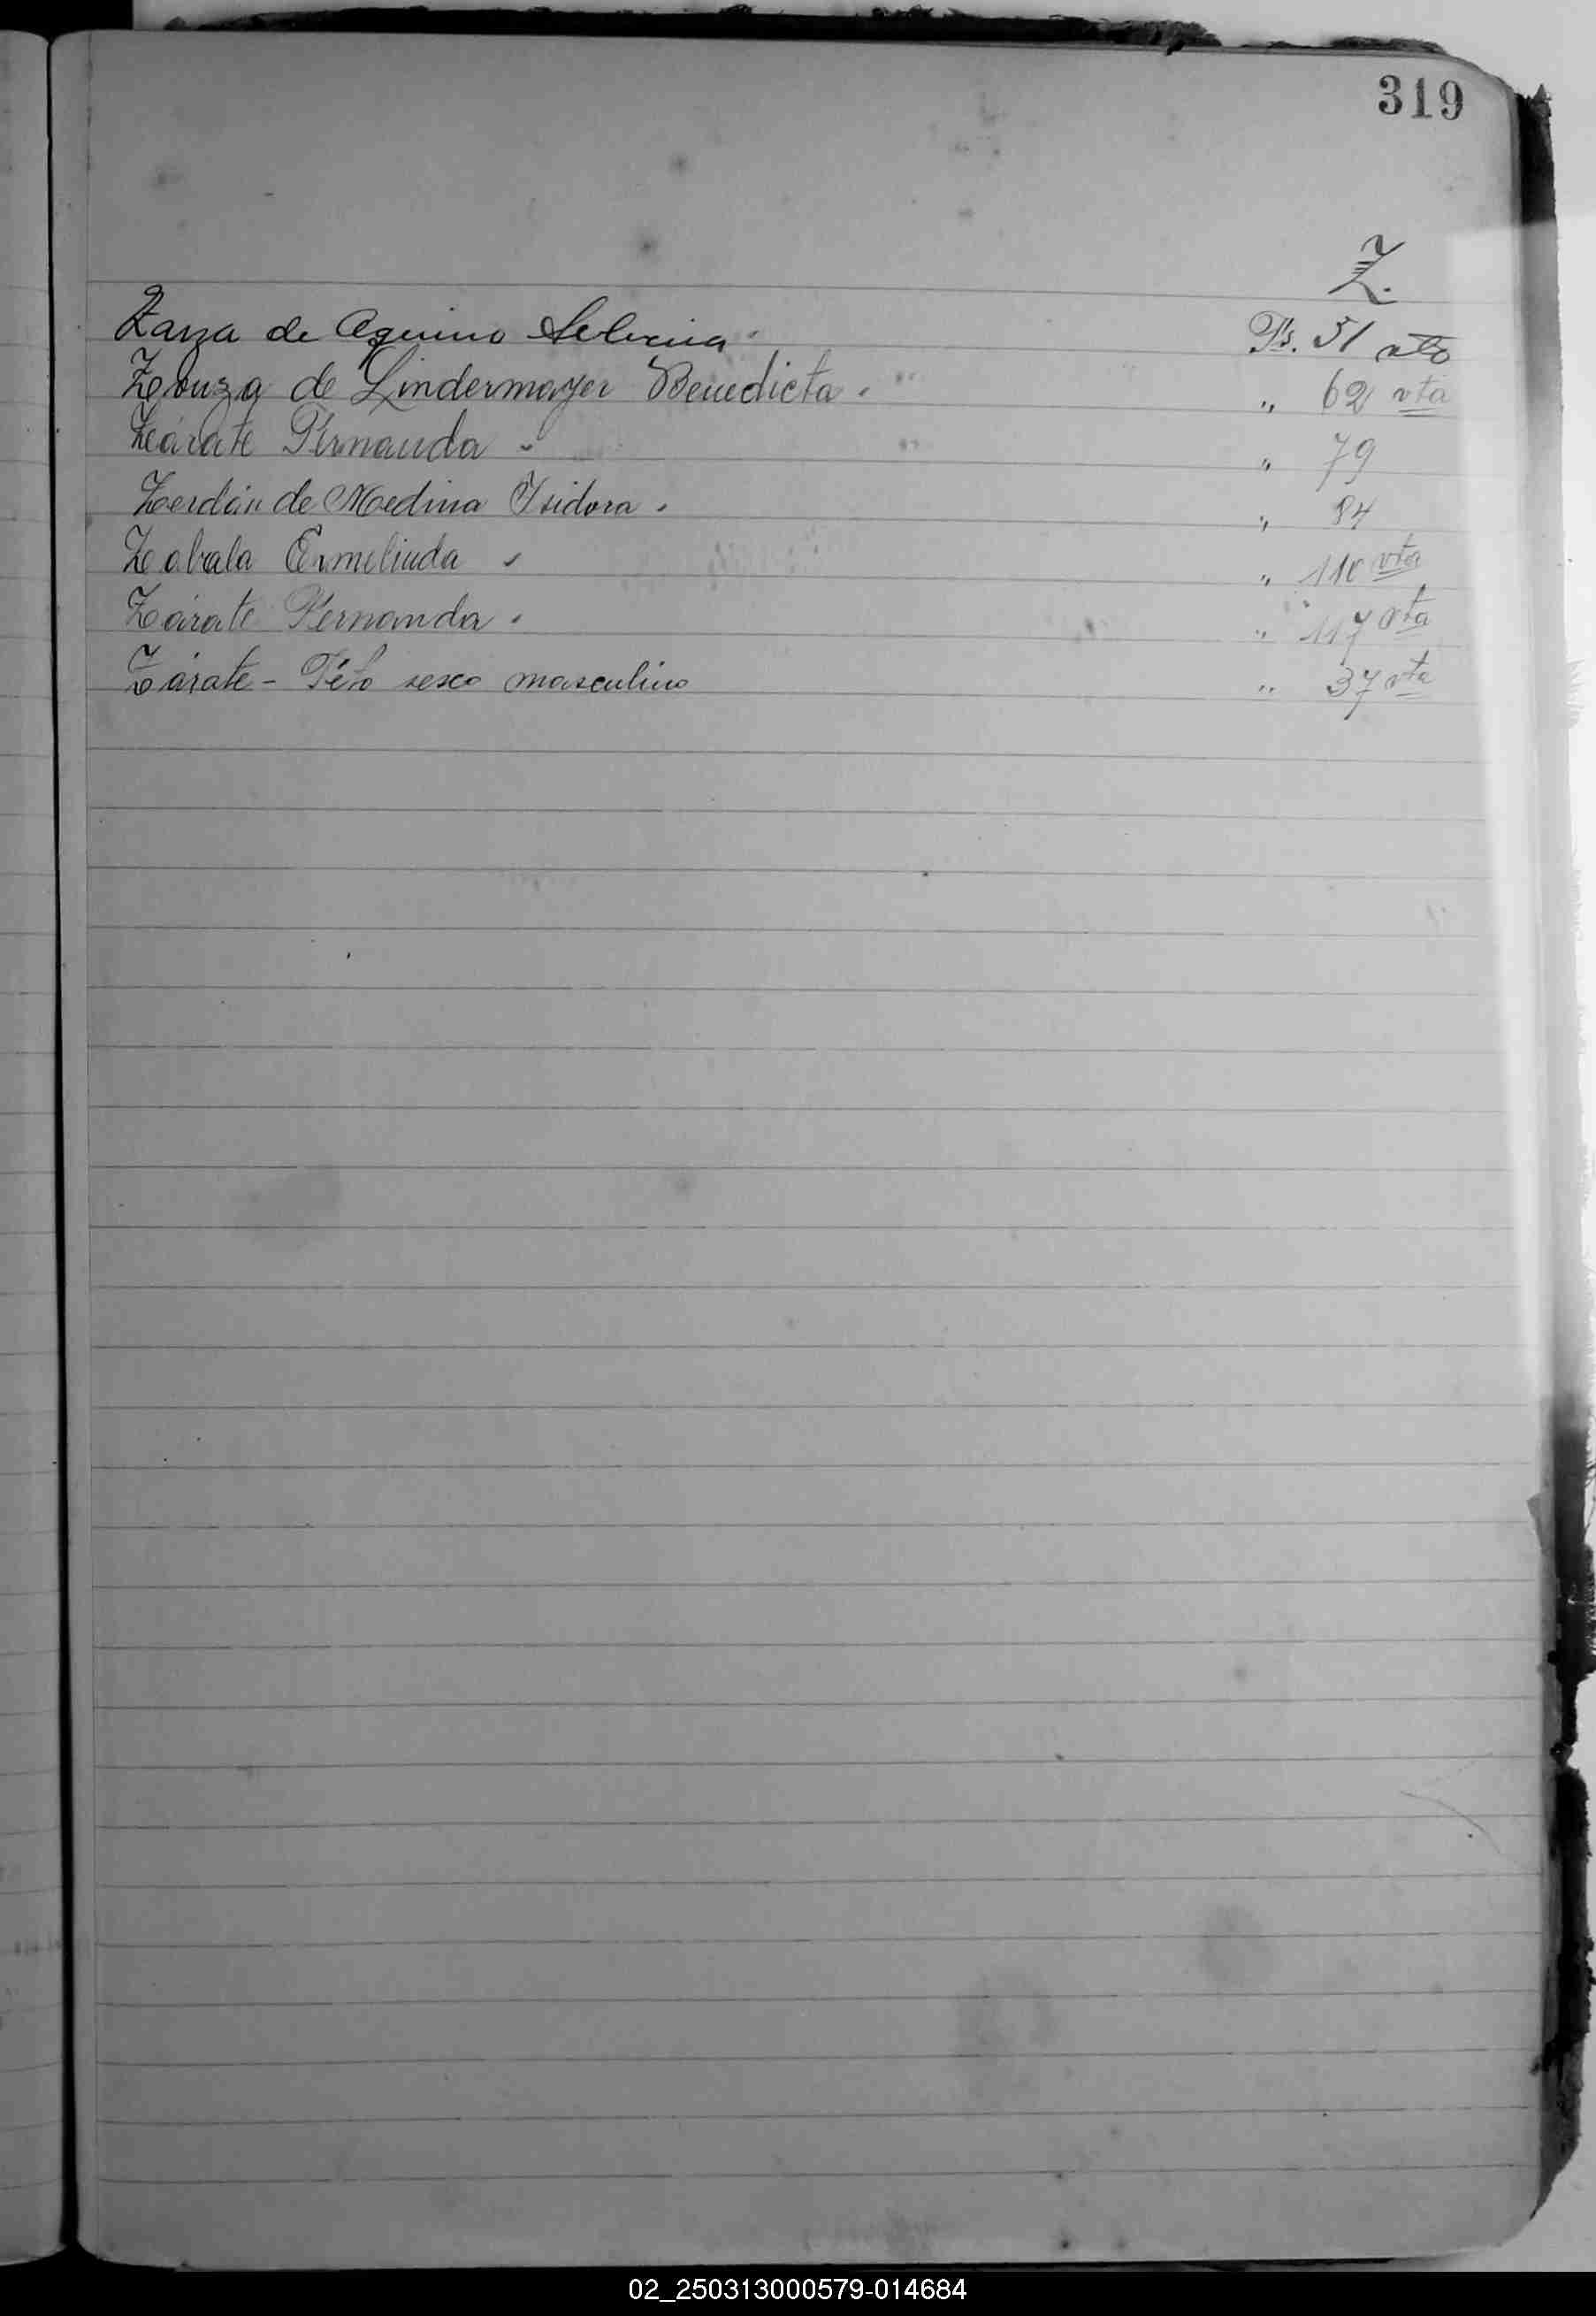 319
Z.
Zarza de Aquino Silveria Fs. 51 vto
Zouza de Lindermayer Benedicta. " 62 vta
Zárate Fernanda " 79
Zerdán de Medina Isidora. " 84
Zabala Ermelinda " 110 vta
Zárate Fernanda. " 117 vta
Zárate - Féto sexo masculino " 37 vta
02_250313000579-014684